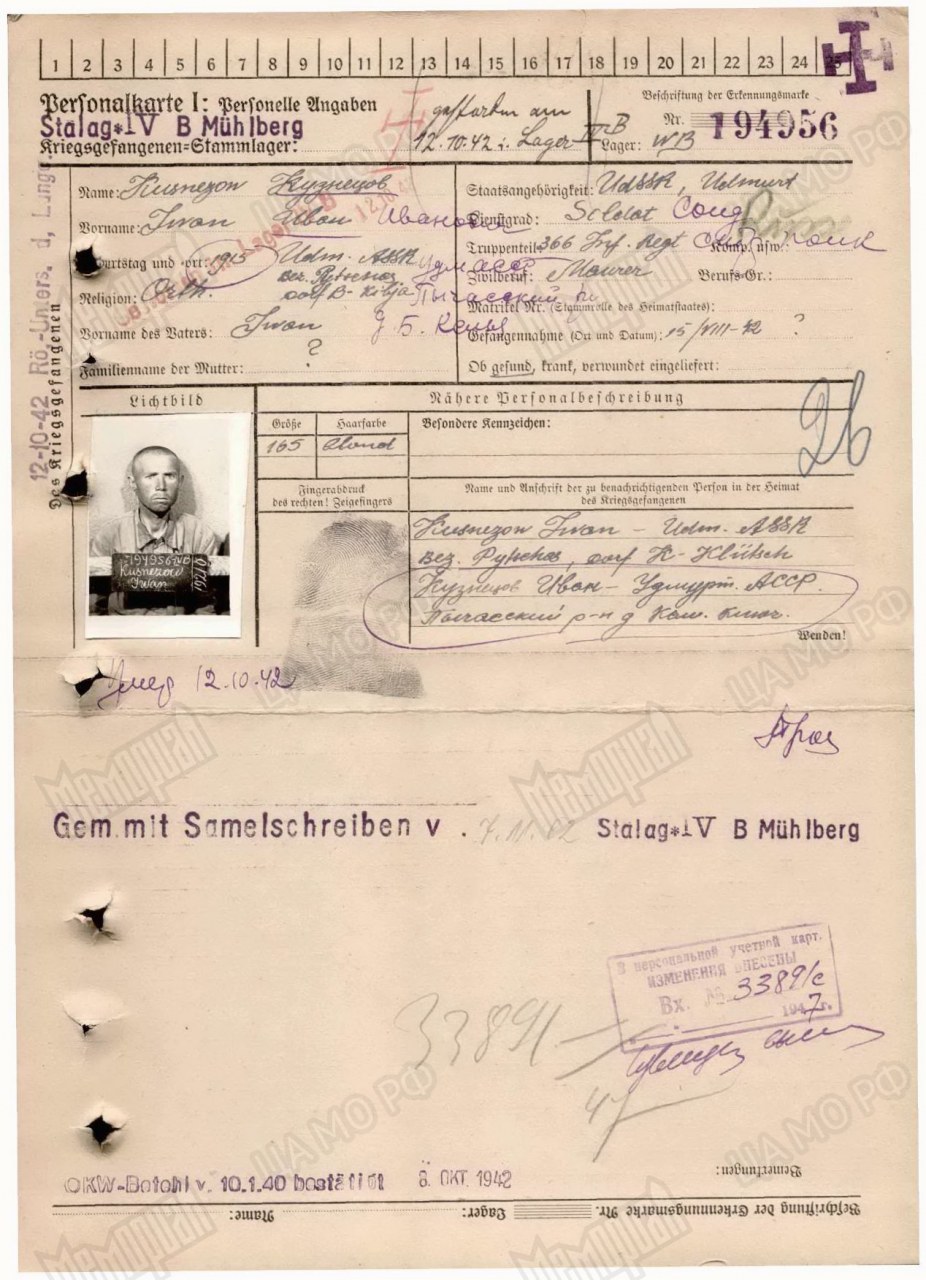 1 2 3 4 5 6 7 8 9 10 11 12 13 14 15 16 17 18 19 20 21 22 23 24 25
Personalkarte I: Personelle Angaben
Stalag*IV B Mühlberg
Kriegsgefangenen=Stammlager:
gestorben am
12.10.42 i. Lager IV B
Beschriftung der Erkennungsmarke
Nr. 194956
Lager: IVB
Des Kriegsgefangenen
12-10-42 Rö.-Unters. d. Lunge
Name: Kusnezow Кузнецов
Vorname: Iwan Иван Иванович
Geburtstag und -ort: 1915 Udm. ASSR
Удм АССР
Religion: Orth. dorf B-Kibja Пычасский
Vorname des Vaters: Iwan
Familienname der Mutter: ?
Staatsangehörigkeit: UdSSR, Udmurt
Dienstgrad: Soldat Солд
Truppenteil: 366 Inf. Regt Komp. usw.: полк
Zivilberuf: Maurer Berufs-Gr.:
Matrikel Nr. (Stammrolle des Heimatstaates):
Gefangennahme (Ort und Datum): 15/VIII-42 ?
Ob gesund, krank, verwundet eingeliefert:
Lichtbild
Nähere Personalbeschreibung
Größe Haarfarbe Besondere Kennzeichen:
165 blond
26
Fingerabdruck
des rechten! Zeigefingers
Name und Anschrift der zu benachrichtigenden Person in der Heimat
des Kriegsgefangenen
Kusnezow Iwan - Udm. ASSR
dorf K-Klütsch
Кузнецов Иван - Удмурт. АССР.
Пычасский р-н д Кам. ключ.
Wenden!
194956
Kusnezow
Iwan
Умер 12.10.42
Gem. mit Samelschreiben v. 7.11.42 Stalag*IV B Mühlberg
В персональной учетной карт.
ИЗМЕНЕНИЯ ВНЕСЕНЫ
Вх. № 3389/с
1947г.
33891
OKW-Befehl v. 10.1.40 bestätigt 8. OKT. 1942
Bemerkungen:
Beschriftung der Erkennungsmarke Nr. Lager: Name:
МЕМОРИАЛ
ЦАМО РФ